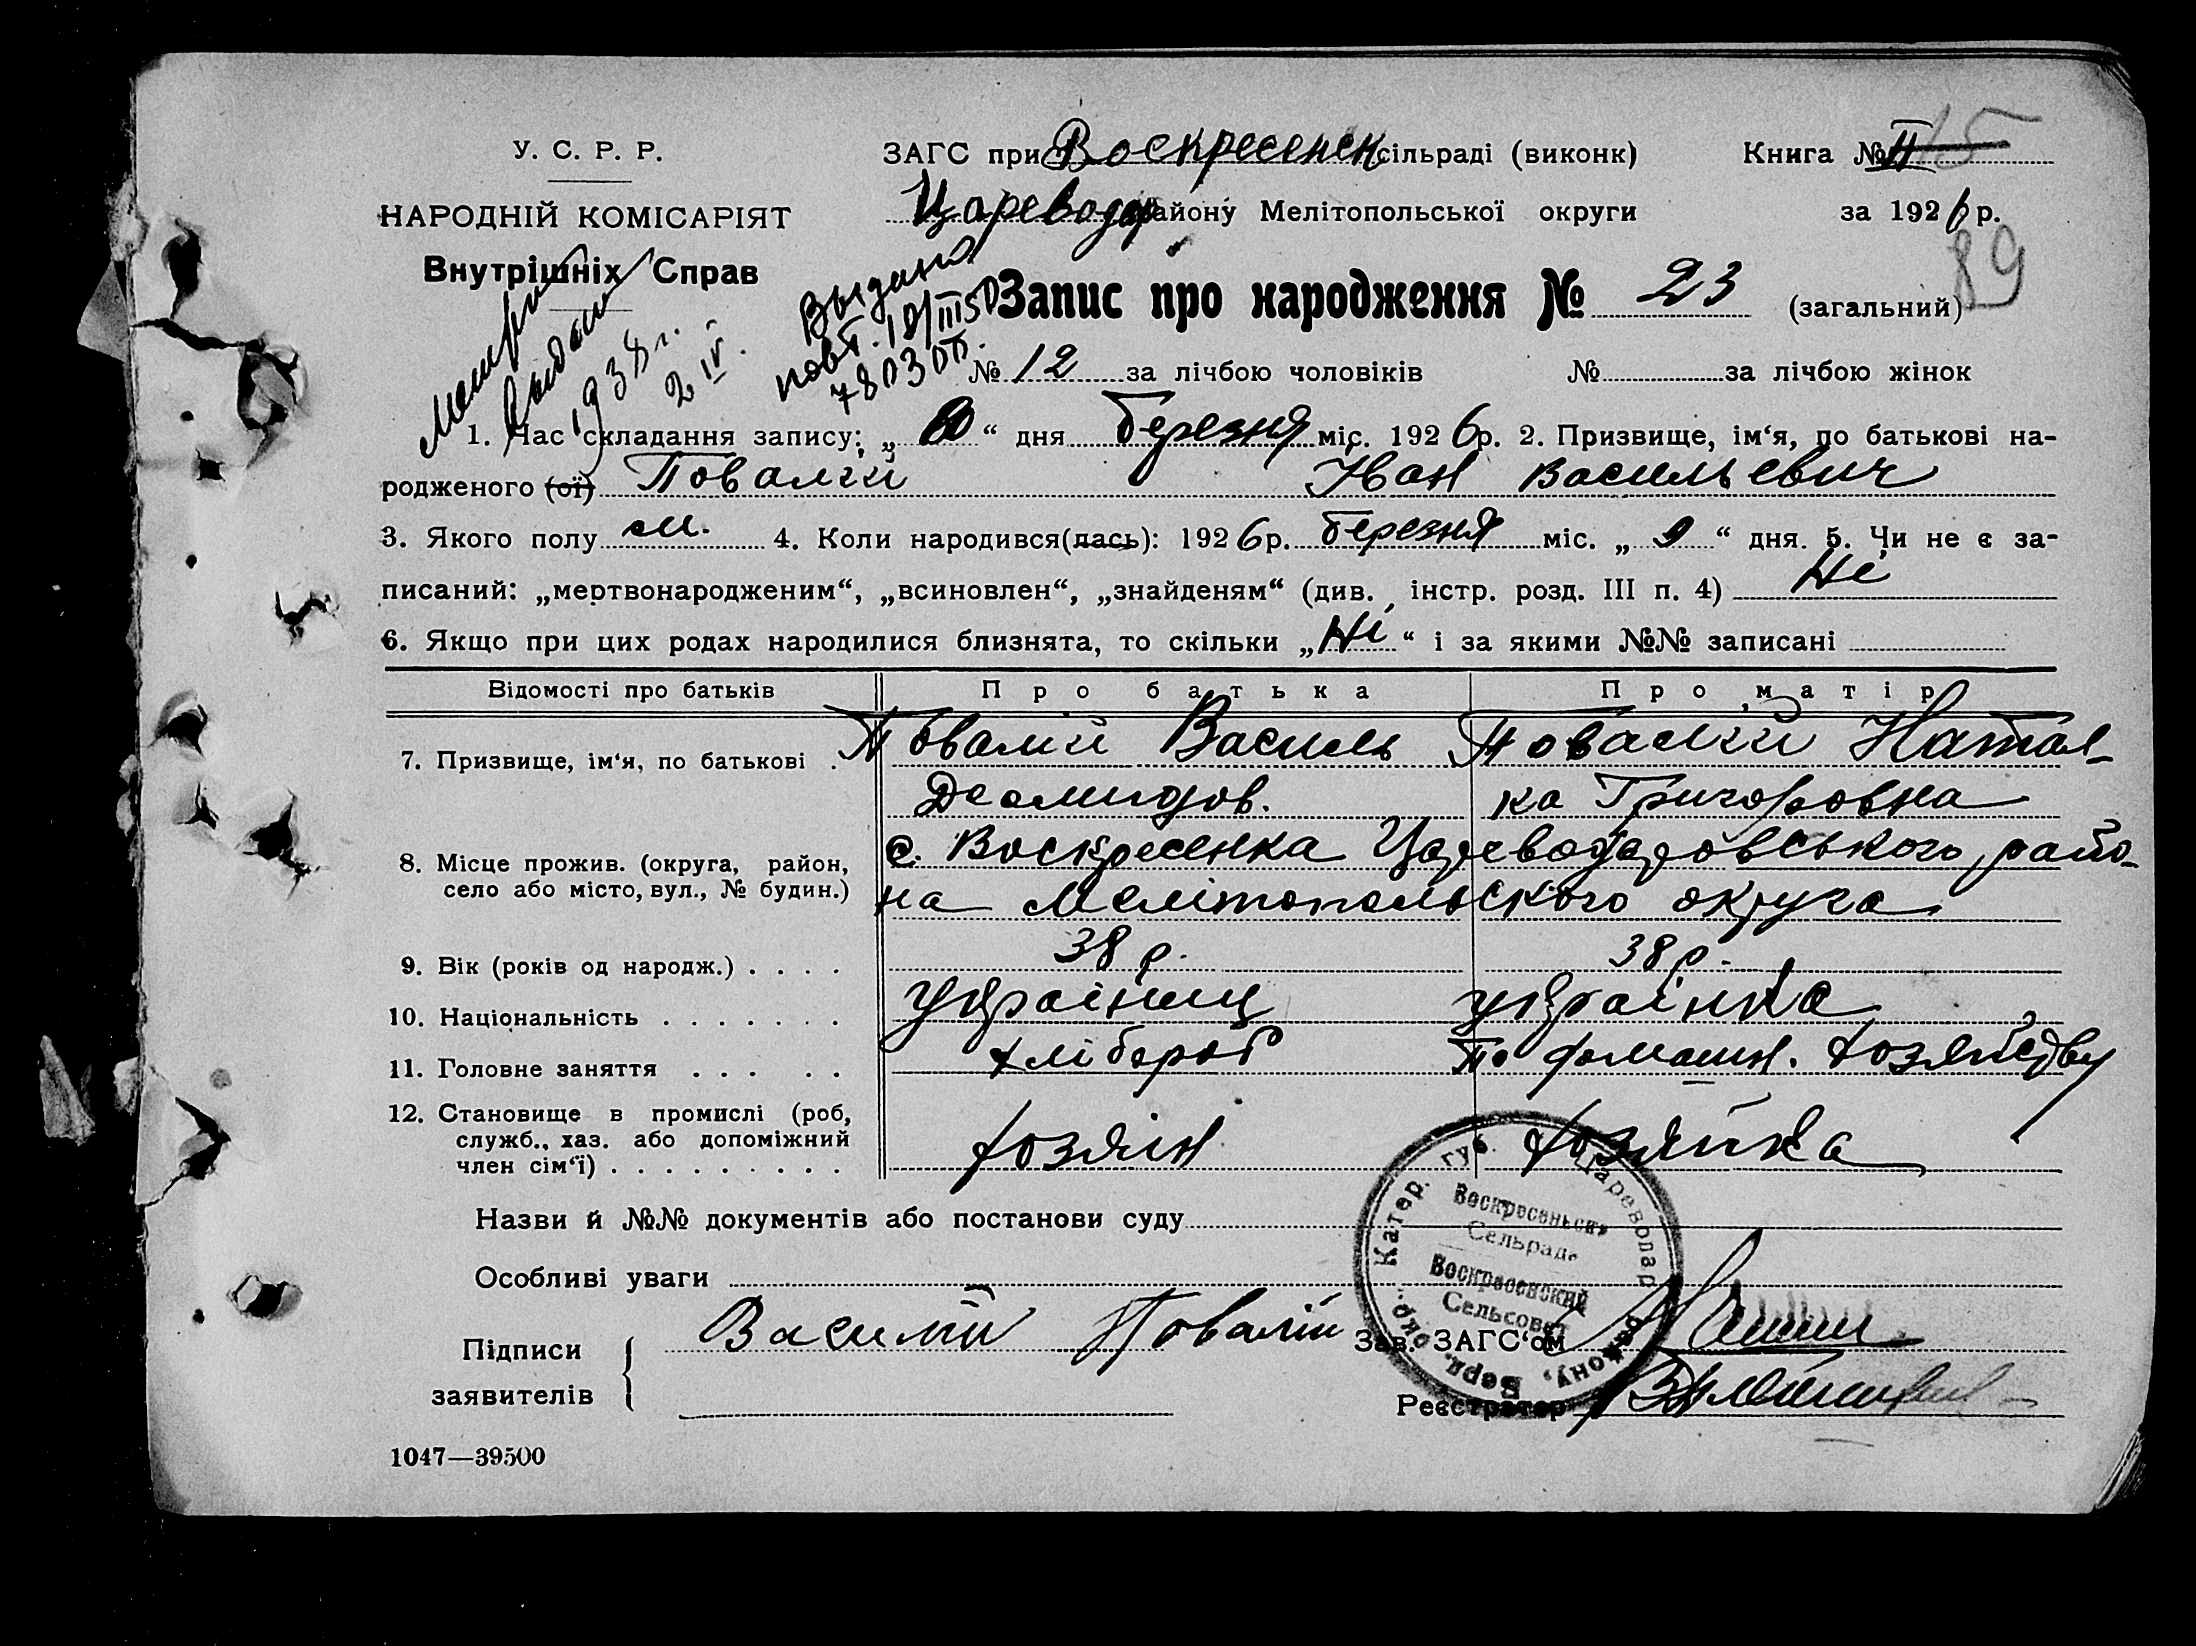 У. С. Р. Р.
НАРОДНІЙ КОМІСАРІЯТ
Внутрішніх Справ
ЗАГС при Воскресенск сільраді (виконк)
Цареводар району Мелітопольської округи
Книга № II 15
за 1926 р.
89
Метрика
выдан
1938 г.
2 IV.
Выдано
повт. 18/III 50
Запис про народження № 23 (загальний)
№ 12 за лічбою чоловіків № за лічбою жінок
1. Час складання запису: „ “ дня березня міс. 1926 р. 2. Призвище, ім‘я, по батькові на-
родженого (ої) Повалий Иван Васильевич
3. Якого полу м. 4. Коли народився(лась): 1926 р. березня міс. „ 9 “ дня. 5. Чи не є за-
писаний: „мертвонародженим“, „всиновлен“, „знайденям“ (див. інстр. розд. III п. 4) Ні
6. Якщо при цих родах народилися близнята, то скільки „ Ні “ і за якими №№ записані
Відомості про батьків Про батька Про матір
7. Призвище, ім‘я, по батькові . Повалий Василь Повалий Натал-
Деомидов. ка Григоровна
8. Місце прожив. (округа, район, с. Воскресенка Цареводаровського райо-
село або місто, вул., № будин.) на Мелітопольского округа
9. Вік (років од народж.) . . . . 38 р. 38 р.
10. Національність . . . . . . . українец українка
11. Головне заняття . . . . . хлібороб по домашн. хозяйству
12. Становище в промислі (роб,
служб., хаз. або допоміжний хозяін хозяйка
член сім‘ї) . . . . . . . . .
Назви й №№ документів або постанови суду
Особливі уваги
Катер. губ. Цареводар району, Берд. окр.
Воскресеньськ
Сельрада
Воскресенский
Сельсовет
Підписи
заявителів
Василий Повалий Зав. ЗАГС‘ом
Реєстратор
1047—39500